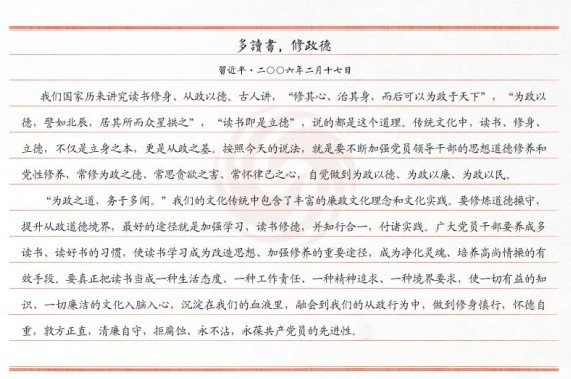 多讀書，修政德
習近平·二〇〇六年二月十七日
我们国家历来讲究读书修身、从政以德。古人讲，“修其心、治其身，而后可以为政于天下”，“为政以
德，譬如北辰，居其所而众星拱之”，“读书即是立德”，说的都是这个道理。传统文化中，读书、修身、
立德，不仅是立身之本，更是从政之基。按照今天的说法，就是要不断加强党员领导干部的思想道德修养和
党性修养，常修为政之德、常思贪欲之害、常怀律己之心，自觉做到为政以德、为政以廉、为政以民。
“为政之道，务于多闻。”我们的文化传统中包含了丰富的廉政文化理念和文化实践。要修炼道德操守，
提升从政道德境界，最好的途径就是加强学习，读书修德，并知行合一，付诸实践。广大党员干部要养成多
读书、读好书的习惯，使读书学习成为改造思想、加强修养的重要途径，成为净化灵魂、培养高尚情操的有
效手段。要真正把读书当成一种生活态度、一种工作责任、一种精神追求、一种境界要求，使一切有益的知
识、一切廉洁的文化入脑入心，沉淀在我们的血液里，融会到我们的从政行为中，做到修身慎行，怀德自
重，敦方正直，清廉自守，拒腐蚀、永不沾，永葆共产党员的先进性。